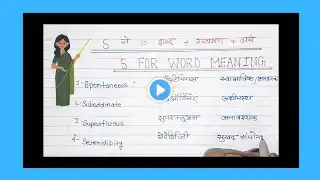 S से 10 शब्द + उच्चारण + अर्थ
S FOR WORD MEANING
1. Spontaneous
2. Subordinate अधीनस्थ
3. Superfluous सुपरफ्लुअस अनावश्यक
4. Serendipity सेरेंडिपिटी सुखद संयोग